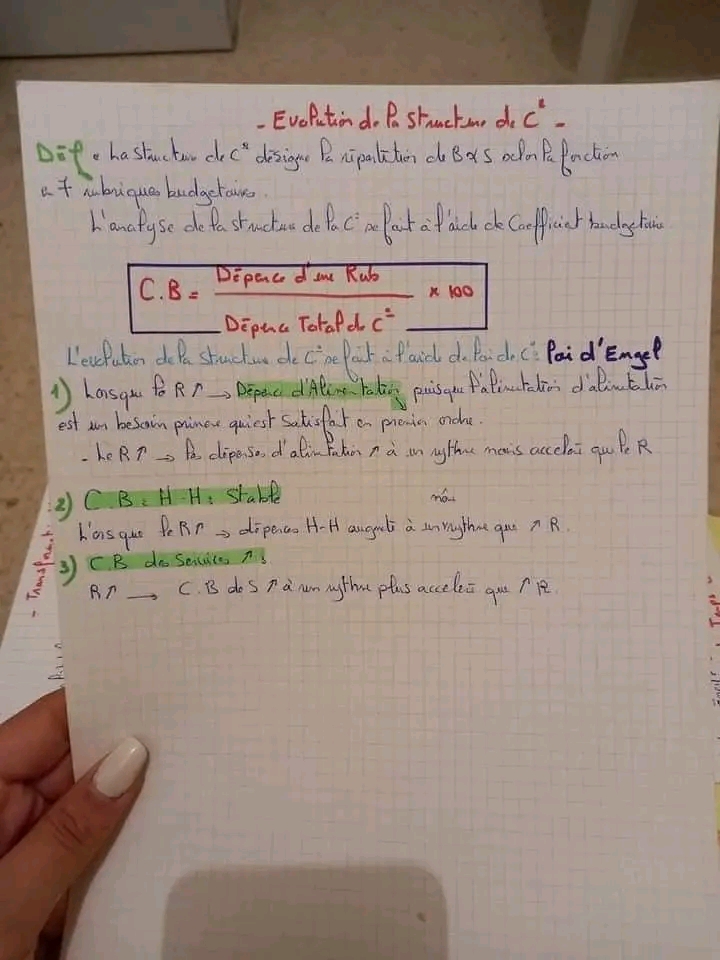 - Evolution de la structure de C° -
Déf : La structure de C° désigne la répartition de B & S selon la fonction
7 rubriques budgetaires.
L'analyse de la structure de la C° se fait à l'aide de Coefficient budgetaire
C.B = Dépence d'une Rub
× 100
Dépence Total de C°
L'evolution de la structure de C° se fait à l'aide de loi de C° : loi d'Engel
1) Lorsque le R ↑ → Dépence d'Alimentation ↘ puisque l'alimentation d'alimentation
est un besoin primere qui est satisfait en premier ordre.
- Le R ↑ → la dépense d'alimentation ↑ à un rythme mois acceleré que le R
2) C.B : H-H : Stable
Lorsque le R ↑ → dépences H-H augmente à un rythme que ↑ R.
3) C.B des Services ↑ :
R ↑ → C.B de S ↑ à un rythme plus acceleré que ↑ R.
- Transport :